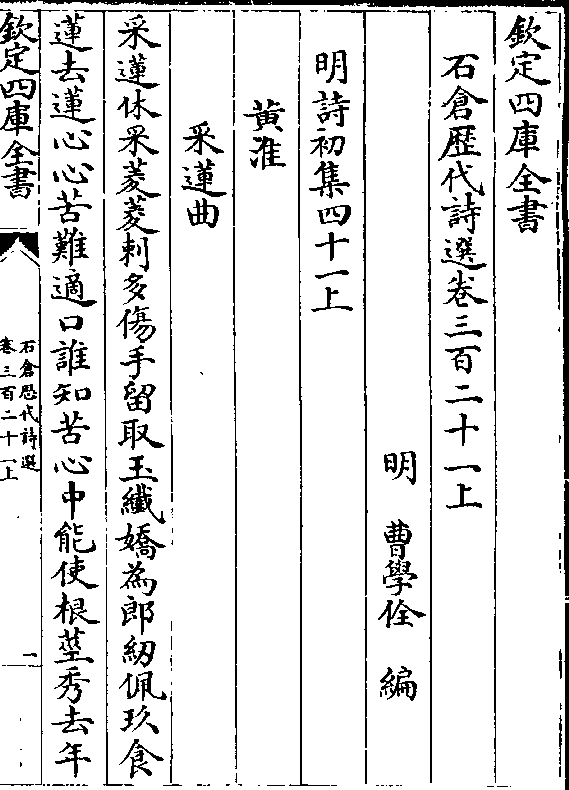 欽定四庫全書
石倉歴代詩選卷三百二十一上
明 曹學佺 編
明詩初集四十一上
黄淮
采蓮曲
采蓮休采菱菱刺多傷手留取玉纖嬌為郎紉佩玖食
蓮去蓮心心苦難適口誰知苦心中能使根莖秀去年
欽定四庫全書
石倉歴代詩選
卷三百二十一上
一